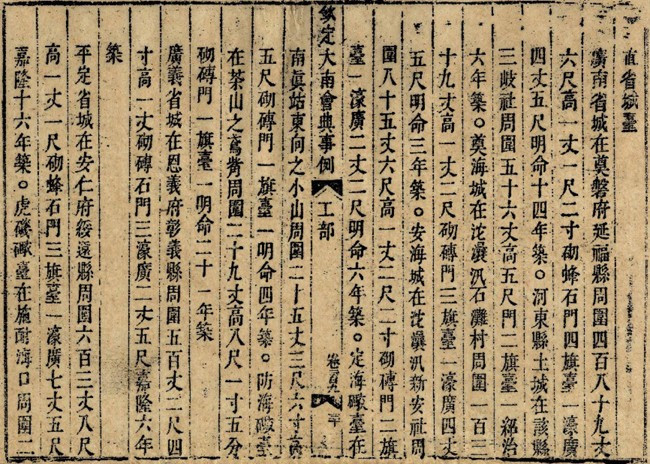 直省城臺
廣南省城在奠磐府延福縣周圍四百八十九丈
六尺高一丈一尺二寸砌蜂石門四旗臺一濠廣
四丈五尺明命十四年築○河東縣土城在該縣
三岐社周圍五十六丈高五尺門二旗臺一紹治
六年築○奠海城在沱㶞汛石灘村周圍一百三
十九丈高一丈二尺砌磚門三旗臺一濠廣四丈
五尺明命三年築○安海城在沱㶞汛新安社周
圍八十五丈六尺高一丈二尺二寸砌磚門二旗
臺一濠廣二丈二尺明命六年築○定海礮臺在
欽定大南會典事例 工部 卷
南眞站東向之小山周圍二十五丈三尺六寸高
五尺砌磚門一旗臺一明命四年築○防海礮臺
在茶山之嵩觜周圍二十九丈高八尺一寸五分
砌磚門一旗臺一明命二十一年築
廣義省城在思義府彰義縣周圍五百丈二尺四
寸高一丈砌磚石門三濠廣二丈五尺嘉隆六年
築
平定省城在安仁府綏遠縣周圍六百三丈八尺
高一丈一尺砌蜂石門三旗臺一濠廣七丈五尺
嘉隆十六年築○虎磯礮臺在施耐海口周圍二